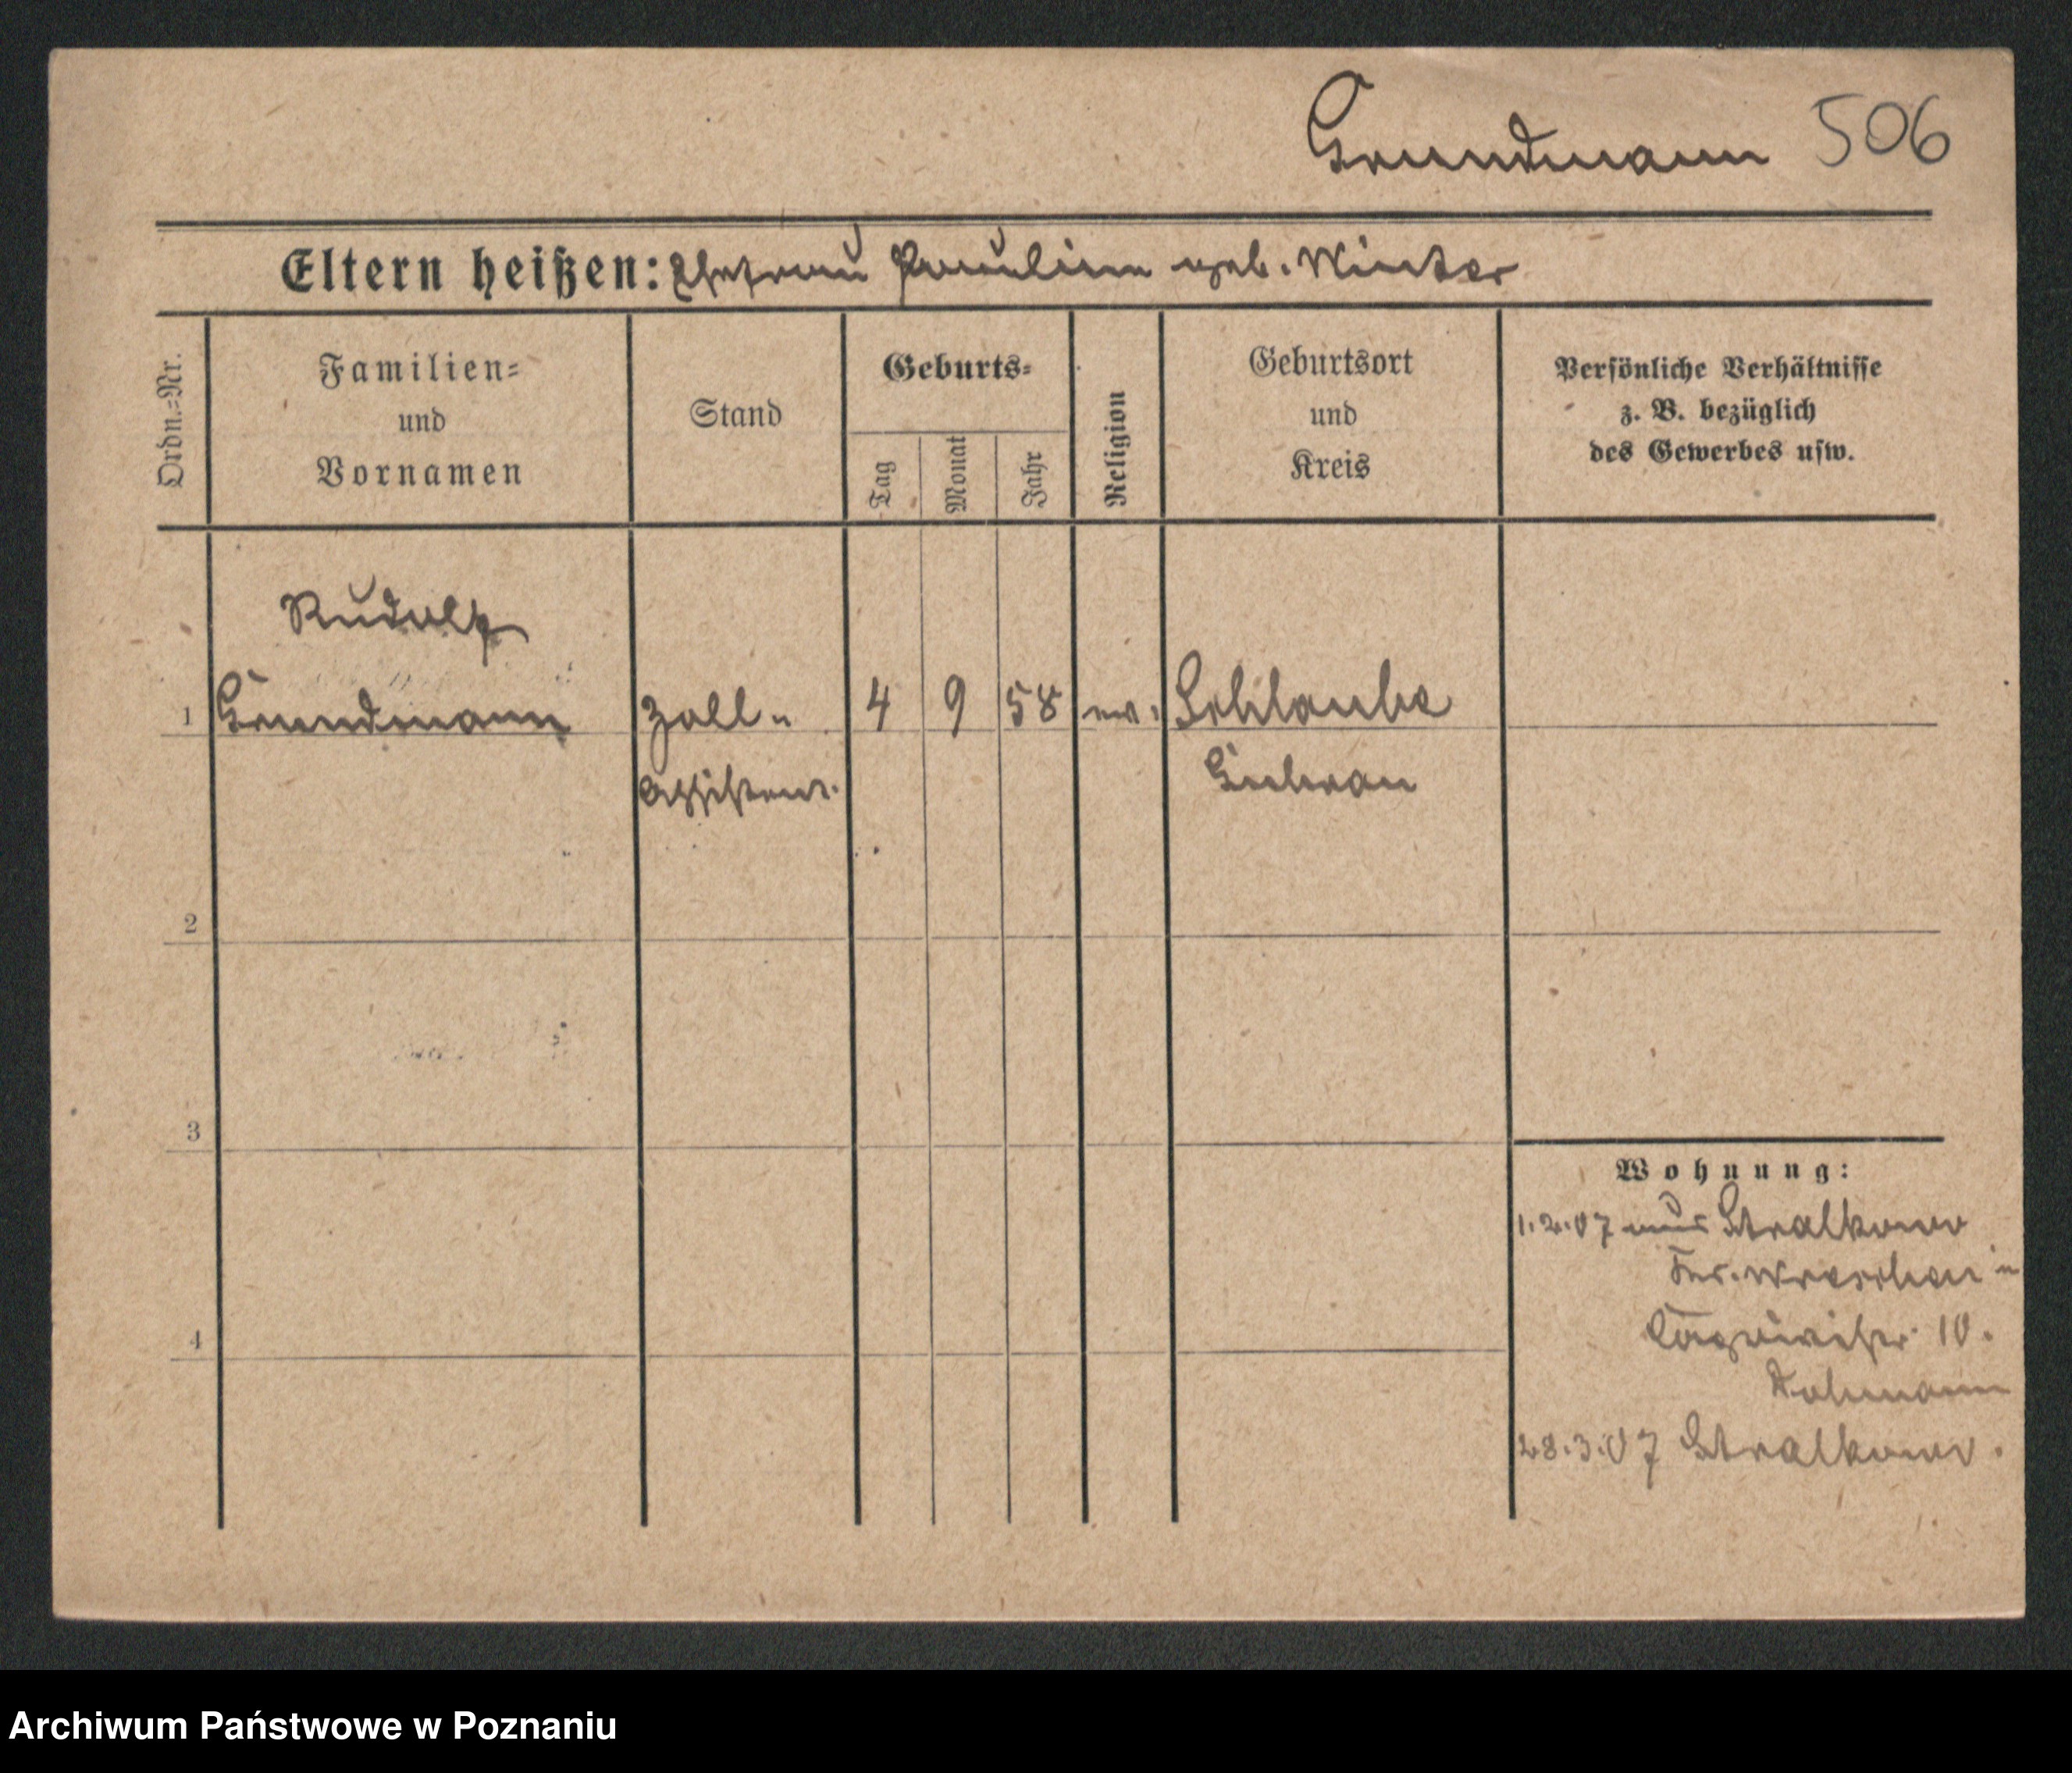 Grundmann 506
Eltern heißen: Ehefrau Pauline geb. Winter
Ordn.-Nr.
Familien-
und
Vornamen
Stand
Geburts-
Tag
Monat
Jahr
Religion
Geburtsort
und
Kreis
Persönliche Verhältnisse
z. B. bezüglich
des Gewerbes usw.
Rudolf
1 Grundmann Zoll- 4 9 58 ev. Schlaube
Assistent. Guhrau
2
3
4
Wohnung:
1.2.07 aus Stralkowo
Wreschen
10.
28.3.07 Stralkowo.
Archiwum Państwowe w Poznaniu